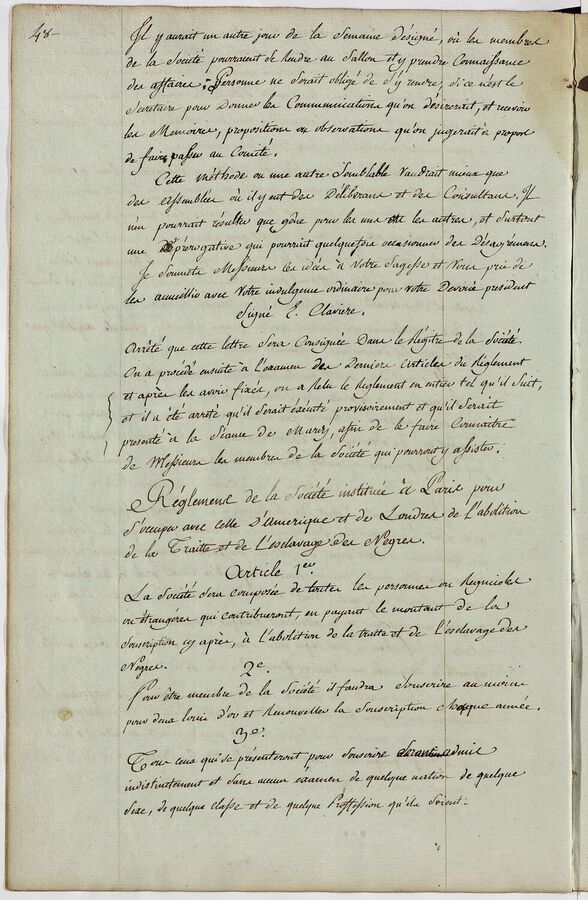 48-
Il y aurait un autre jour de la Semaine désigné, où les membres
de la Société pourraient se rendre au Sallon et y prendre Connaissance
des affaires; Personne ne serait obligé de s'y rendre, si ce n'est le
Secretaire pour Donner les Communications qu'on désirerait, et recevoir
les Memoires, propositions ou observations qu'on jugerait à propos
de faire passer au Comité.
Cette méthode ou une autre Semblable Vaudrait mieux que
des assemblées où il y eut des Déliberans et des Consultans. Il
n'en pourrait résulter que gêne pour les uns et les autres, et surtout
une prérogative qui pourrait quelquefois occasionner des Désagremens.
Je Soumets Messieurs ces idées à Votre Sagesse et Vous prie de
les accueillir avec Votre indulgence ordinaire pour votre Devoué président
Signé E. Claviere.
Arrêté que cette lettre Sera Consignée Dans le Régitre de la Société.
On a procédé ensuite à L'éxamen des Derniers Articles du Réglement
et après les avoir fixés, on a Relu le Reglement en entier tel qu'il Suit,
et il a été arreté qu'il Serait éxécuté provisoirement et qu'il Serait
presenté à la Séance de Mardy, afin de le faire Connaitre
de Messieurs les membres de la Société qui pourront y assister.
Réglement de la Société instituée à Paris pour
S'occuper avec celles D'Amerique et de Londres de L'abolition
de la Traite et de L'esclavage des Negres.
Article 1er.
La Société sera composée de toutes les personnes ou Regnicoles
ou étrangeres qui contribueront, en payant le montant de la
Souscription cy après, à L'abolition de la traite et de L'esclavage des
Négres.
2e.
Pour être membre de la Société il faudra Souscrire au moins
pour deux louis d'or et Renouveller la Souscription Chaque année.
3e.
Tous ceux qui se présenteront pour Souscrire Seront admis
indistinctement et Sans aucun éxamen de quelque nation de quelque
Sexe, de quelque classe et de quelque Proffession qu'ils Soient.